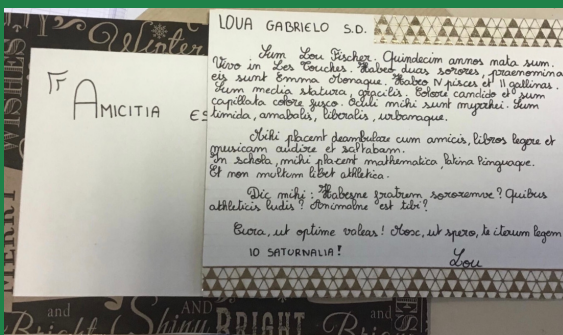 WISHES
Winter
MERRY
AMICITIA ES
LOUA GABRIELO S.D.
Sum Lou Fischer. Quindecim annos nata sum.
Vivo in Les Touches. Habeo duas sorores, praenomina
eis sunt Emma Monaque. Habeo IV pisces et II gallinas.
Sum media statura, gracilis. Colore candido et sum
capillata colore fusco. Oculi mihi sunt myrrhei. Sum
timida, amabalis, liberalis, urbanaque.
Mihi placent deambulare cum amicis, libros legere et
musicam audire et saltabam.
In schola, mihi placent mathematica, latina linguaque.
Et non multum libet athletica.
Dic mihi : Habesne fratrem sororemve ? Quibus
athleticis ludis ? Animalne est tibi ?
Cura, ut optime valeas ! Mox, ut spero, te iterum legam
IO SATURNALIA !
Lou
and
Bright
AND
Shiny
BRIGHT
and
Bright